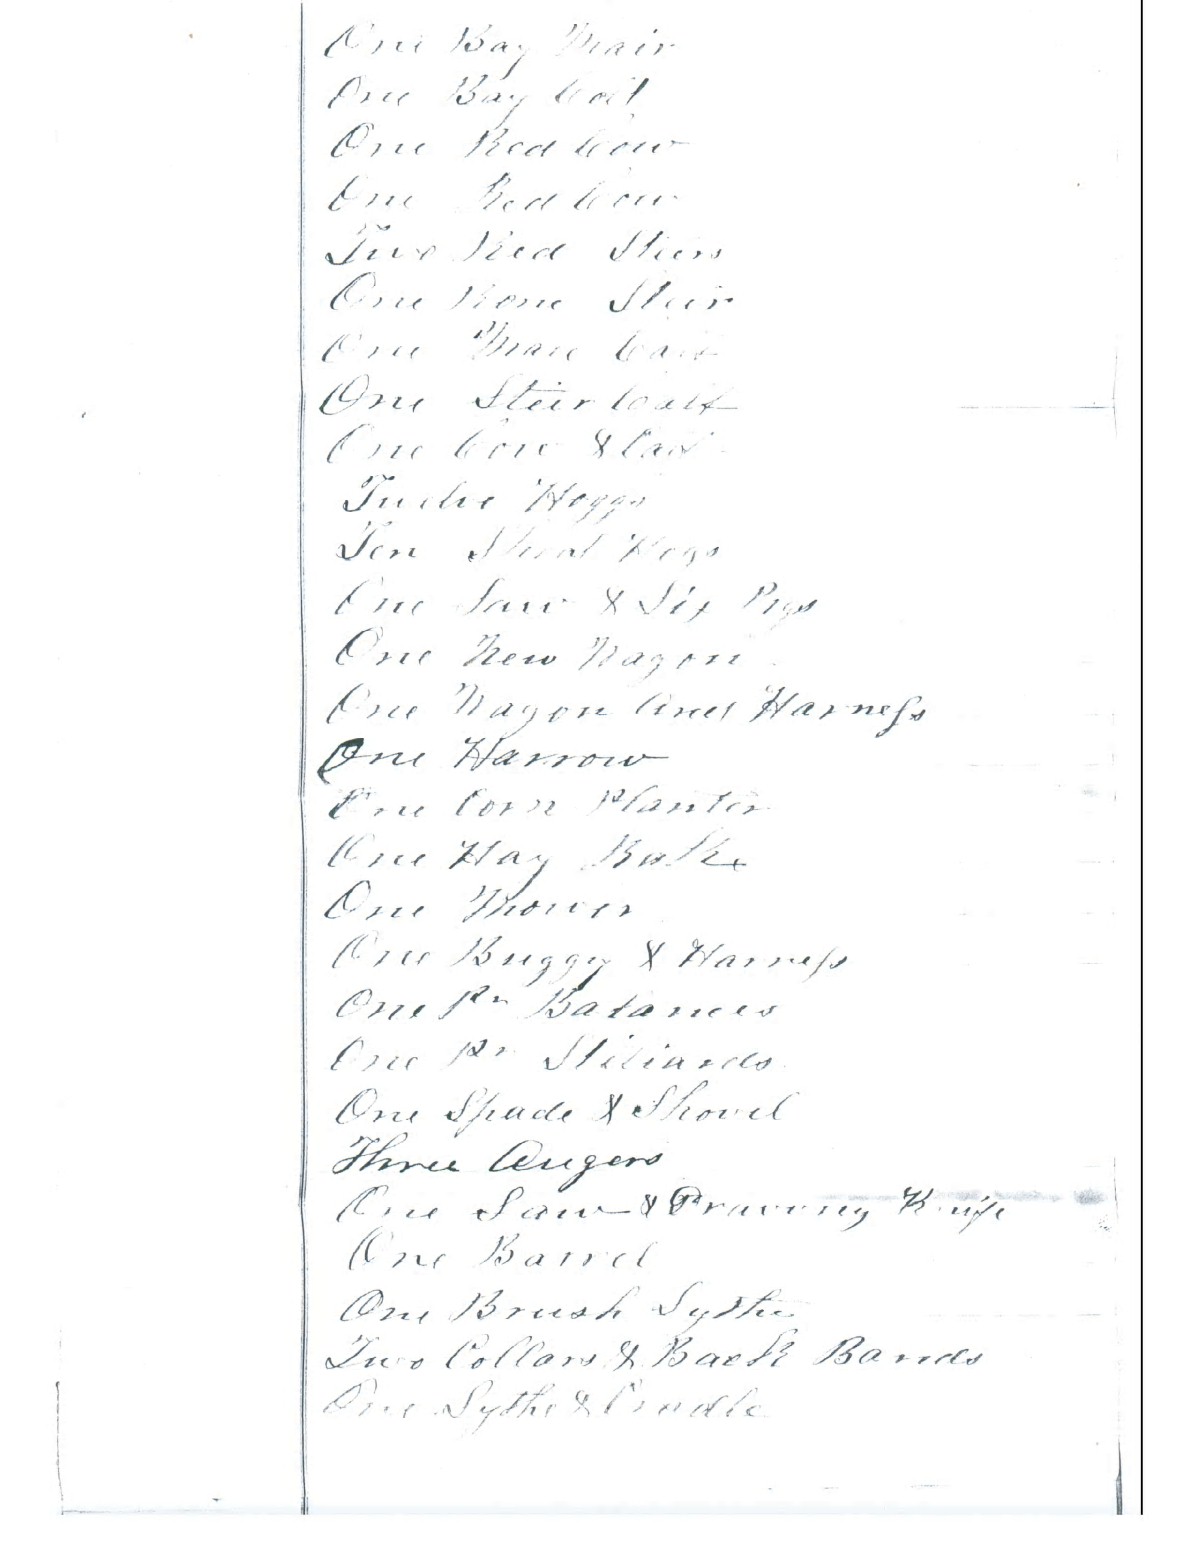 One Bay Mair
One Bay Colt
One Red Cow
One Red Cow
Two Red Steirs
One Rone Steir
One Male Calf
One Steir Calf
One Cow & Calf
Twelve Hoggs
Ten Shoat Hogs
One Saw & Six Pigs
One New Wagon
One Wagon And Harness
One Harrow
One Corn Planter
One Hay Rake
One Mower
One Buggy & Harness
One Pr Balances
One Pr Stiliards
One Spade & Shovel
Three Augers
One Saw & Drawing Knife
One Barrel
One Brush Sythe
Two Collars & Back Bands
One Sythe & Cradle